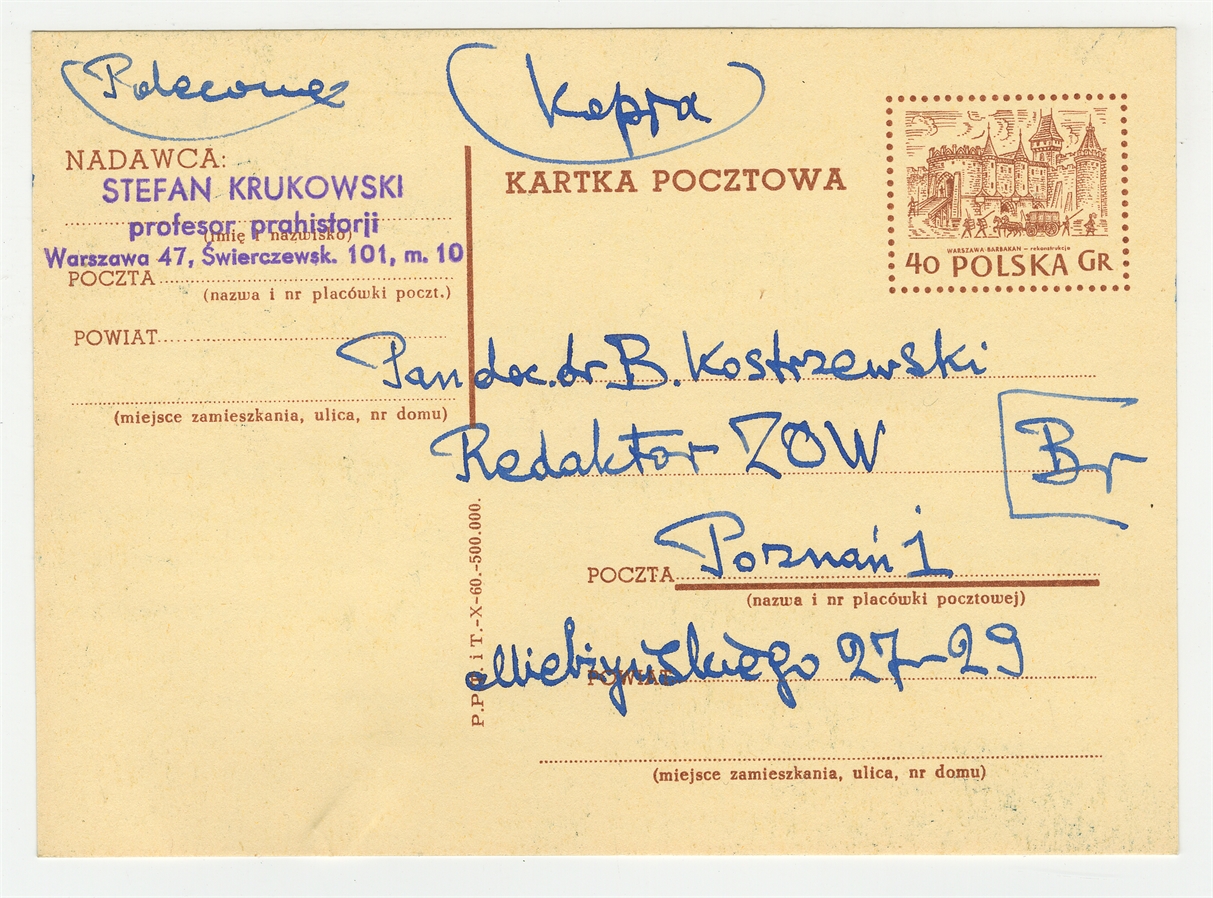 Polecone
(Kopja)
NADAWCA:
STEFAN KRUKOWSKI
profesor prahistorji
(imię i nazwisko)
Warszawa 47, Świerczewsk. 101, m. 10
POCZTA
(nazwa i nr placówki poczt.)
POWIAT
(miejsce zamieszkania, ulica, nr domu)
KARTKA POCZTOWA
WARSZAWA BARBAKAN – rekonstrukcja
40 POLSKA GR
Pan doc. dr B. Kostrzewski
Redaktor ZOW
Br
POCZTA Poznań 1
(nazwa i nr placówki pocztowej)
27–29
POWIAT
(miejsce zamieszkania, ulica, nr domu)
P.P. i T.-X-60.-500.000.